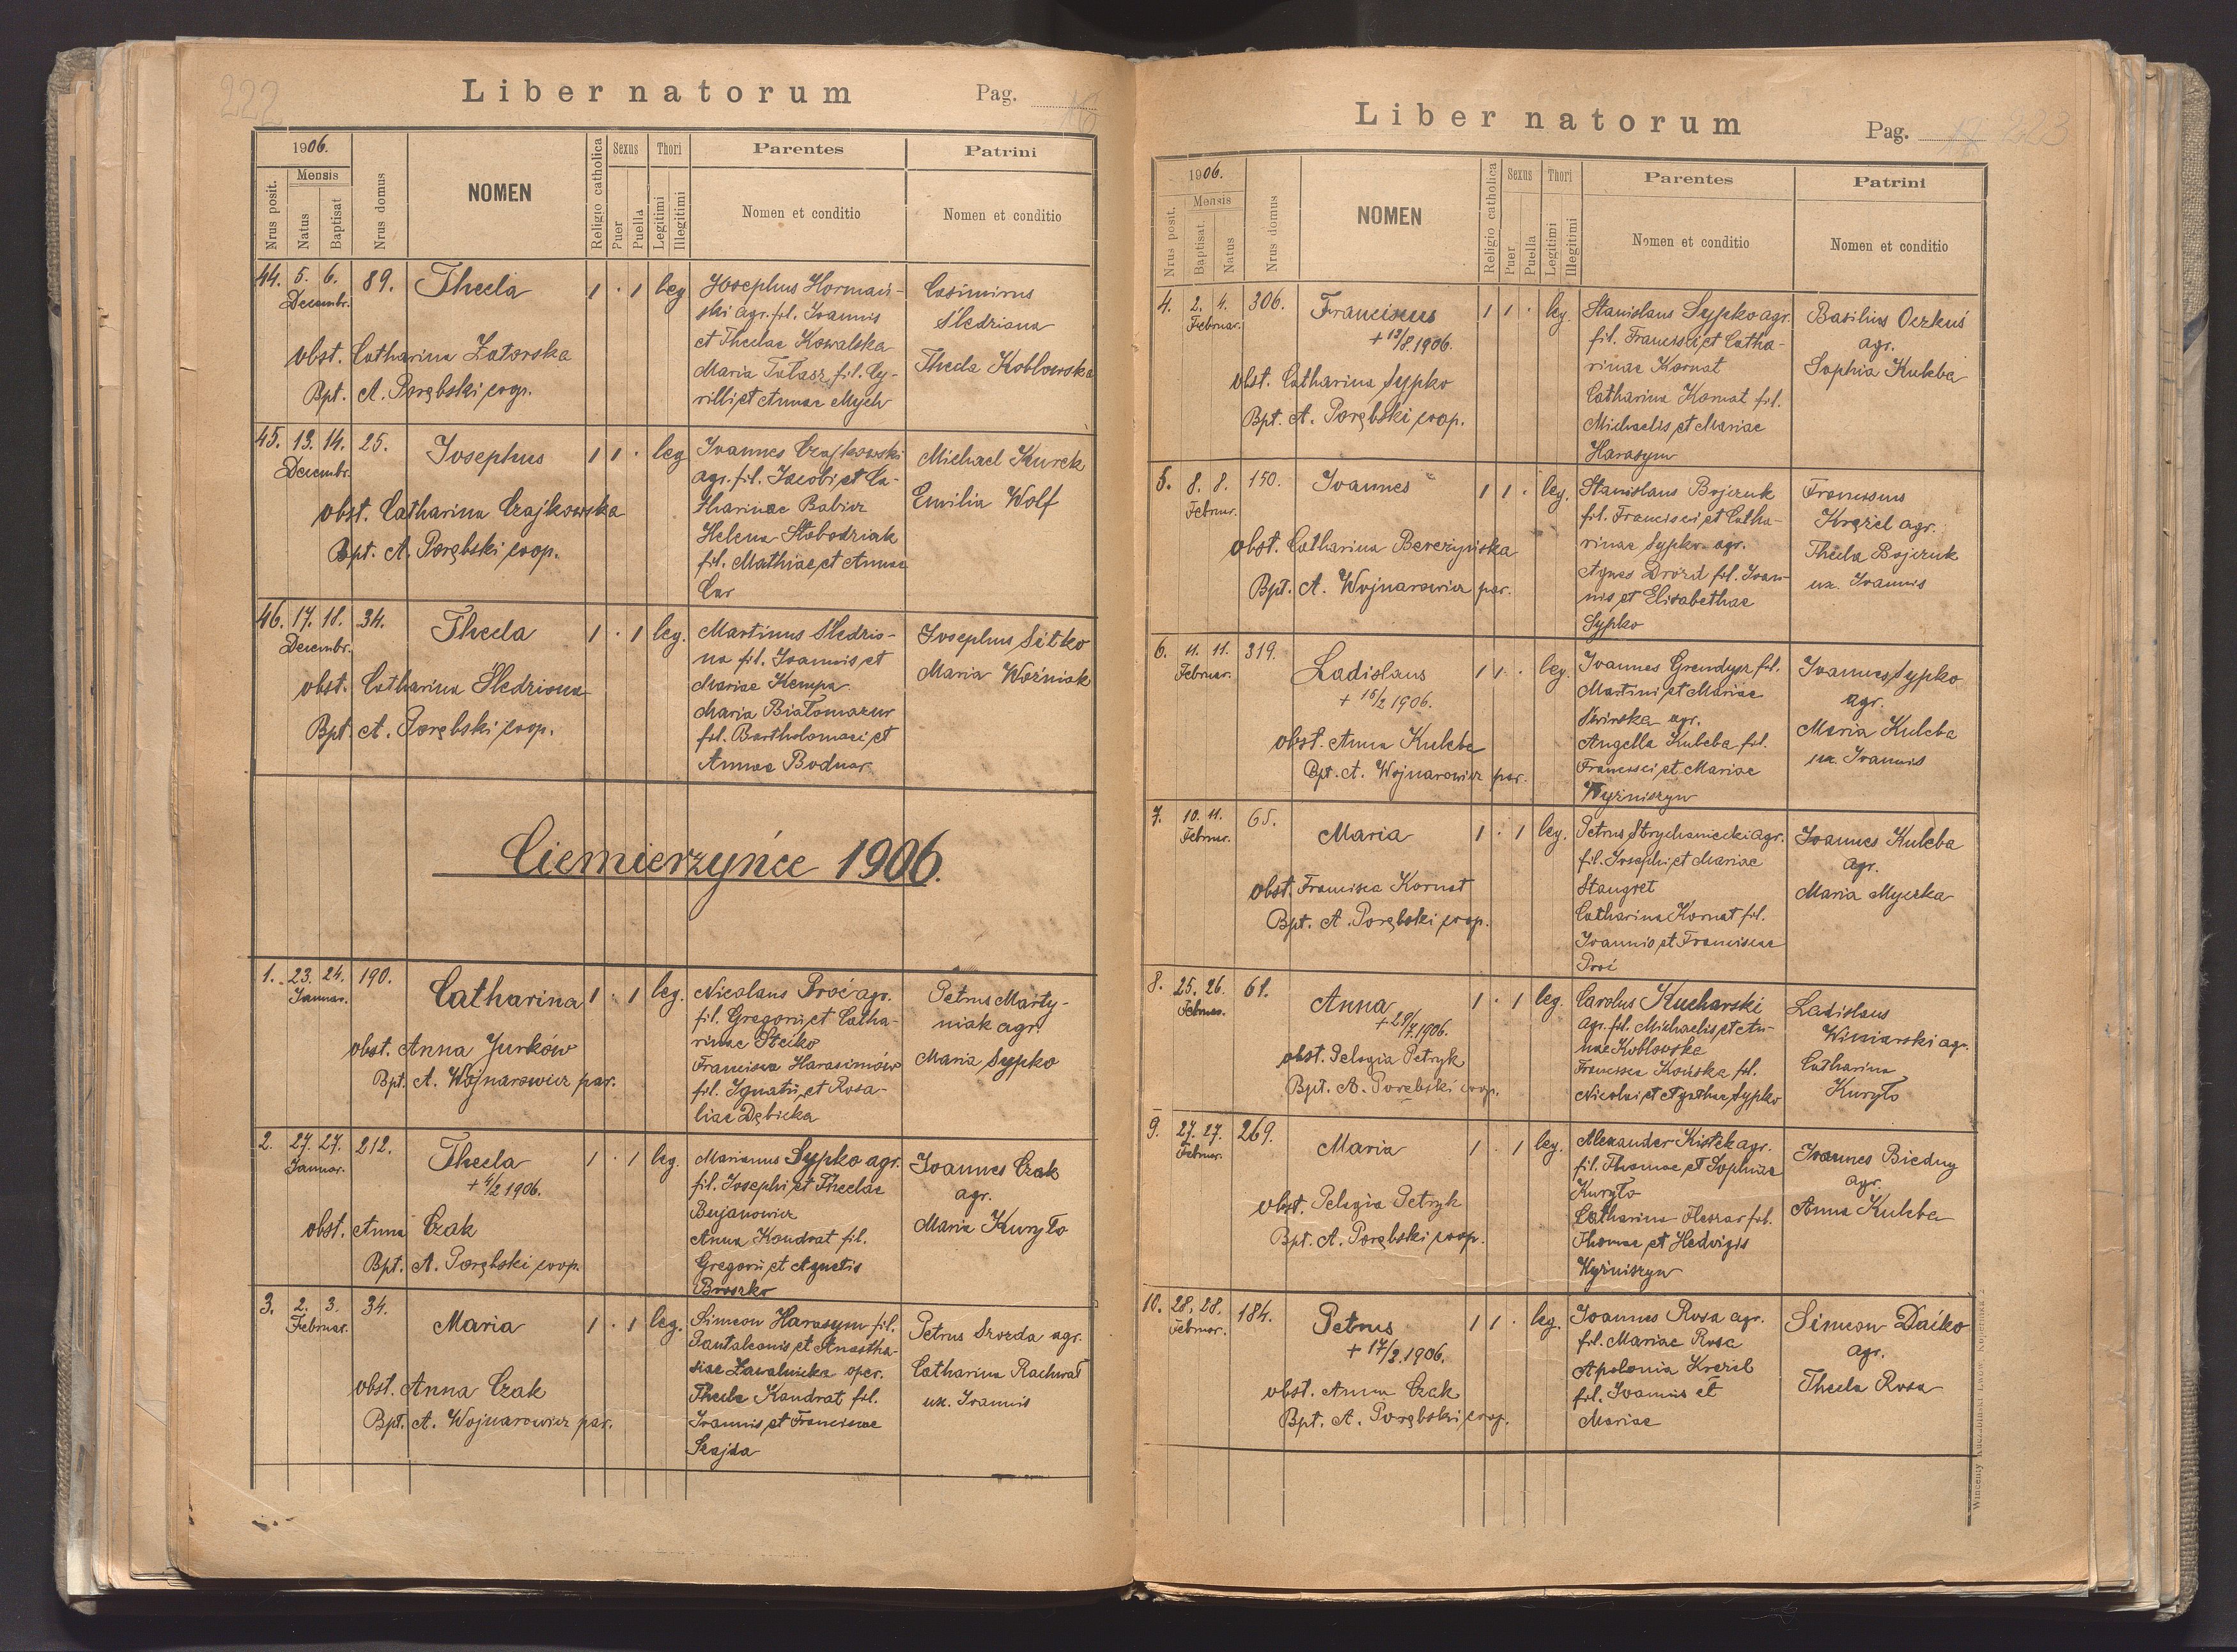 222
Liber natorum
Pag.
1906.
Nrus posit.
Mensis
Natus
Baptisat
Nrus domus
NOMEN
Religio catholica
Sexus
Puer
Puella
Thori
Legitimi
Illegitimi
Parentes
Nomen et conditio
Patrini
Nomen et conditio
44. 5. 6. Decembr. 89. Thecla 1 · 1 leg
obst. Catharina Zatorska
Bpt. A. Porębski coop.
Josephus Hormań-
ski agr. fil. Joannis
et Theclae Kowalska
Maria Tatasz fil. Cy-
rilli et Annae Mych
Casimirus
Śledziona
Thecla Kobłowska
45. 13. 14. Decembr. 25. Josephus 1 1 · leg
obst. Catharina Czajkowska
Bpt. A. Porębski coop.
Joannes Czajkowski
agr. fil. Jacobi et Ca-
tharinae Babicz
Helena Słobodziak
fil. Mathiae et Annae
Car
Michael Kurek
Emilia Wolf
46. 17. 18. Decembr. 34. Thecla 1 · 1 leg.
obst. Catharina Śledziona
Bpt. A. Porębski coop.
Martinus Śledzio-
na fil. Joannis et
Mariae Kempa
Maria Białomazur
fil. Bartholomaei et
Annae Bodnar
Josephus Sitko
Maria Woźniak
Ciemierzyńce 1906.
1. 23. 24. Januar. 190. Catharina 1 · 1 leg.
obst. Anna Jurków
Bpt. A. Wojnarowicz par.
Nicolaus Proć agr.
fil. Gregorii et Catha-
rinae Steiko
Francisca Harasimów
fil. Ignatii et Rosa-
liae Dębicka
Petrus Marty-
niak agr.
Maria Sypko
2. 27. 27. Januar. 212. Thecla 1 · 1 leg.
+ 4/2 1906.
obst. Anna Czak
Bpt. A. Porębski coop.
Marianus Sypko agr.
fil. Josephi et Theclae
Bujanowicz
Anna Kondrat fil.
Gregorii et Agnetis
Broszko
Joannes Czak
agr.
Maria Kuryło
3. 2. 3. Februar. 34. Maria 1 · 1 leg.
obst. Anna Czak
Bpt. A. Wojnarowicz par.
Simeon Harasym fil.
Pantaleonis et Anastha-
siae Zawalnicka oper.
Thecla Kondrat fil.
Joannis et Franciscae
Szajda
Petrus Szozda agr.
Catharina Rachwał
ux. Joannis
Liber natorum
Pag. 223
1906.
Nrus posit.
Mensis
Baptisat
Natus
Nrus domus
NOMEN
Religio catholica
Sexus
Puer
Puella
Thori
Legitimi
Illegitimi
Parentes
Nomen et conditio
Patrini
Nomen et conditio
4. 2. 4. Februar. 306. Franciscus 1 1 · leg.
+ 13/8. 1906.
obst. Catharina Sypko
Bpt. A. Porębski coop.
Stanislaus Sypko agr.
fil. Francisci et Catha-
rinae Kornat
Catharina Kornat fil.
Michaelis et Mariae
Harasym
Basilius Oczkuś
agr.
Sophia Kuleba
5. 8. 8. Februar. 150. Joannes 1 1 · leg.
obst. Catharina Bereżyńska
Bpt. A. Wojnarowicz par.
Stanislaus Bojczuk
fil. Francisci et Catha-
rinae Sypko agr.
Agnes Drózd fil. Joan-
nis et Elisabethae
Sypko
Franciscus
Krężel agr.
Thecla Bojczuk
ux. Joannis
6. 11. 11. Februar. 319. Ladislaus 1 1 · leg.
+ 15/2 1906.
obst. Anna Kuleba
Bpt. A. Wojnarowicz par.
Joannes Grendysz fil.
Martini et Mariae
agr.
Angella Kuleba fil.
Francisci et Mariae
Wyżniszyn
Joannes Sypko
agr.
Maria Kuleba
ux. Joannis
7. 10. 11. Februar. 65. Maria 1 · 1 leg.
obst. Francisca Kornat
Bpt. A. Porębski coop.
Petrus Strychaniecki agr.
fil. Josephi et Mariae
Stangret
Catharina Kornat fil.
Joannis et Franciscae
Proć
Joannes Kuleba
agr.
Maria Myczka
8. 25. 26. Februar. 61. Anna 1 · 1 leg.
+ 29/7. 1906.
obst. Pelagia Petryk
Bpt. A. Porębski coop.
Carolus Kucharski
agr. fil. Michaelis et An-
nae Kobłowska
Francisca Końska fil.
Nicolai et Agathae Sypko
Ladislaus
Winiarski agr.
Catharina
Kuryło
9. 27. 27. Februar. 269. Maria 1 · 1 leg.
obst. Pelagia Petryk
Bpt. A. Porębski coop.
Alexander Kistek agr.
fil. Thomae et Sophiae
Kuryło
Catharina Fleszar fil.
Thomae et Hedvigis
Wyżniszyn
Joannes Biedny
agr.
Anna Kuleba
10. 28. 28. Februar. 184. Petrus 1 1 · leg.
+ 17/2. 1906.
obst. Anna Czak
Bpt. A. Porębski coop.
Joannes Rosa agr.
fil. Mariae Rosa
Apolonia Krezel
fil. Joannis et
Mariae
Simeon Daćko
agr.
Thecla Rosa